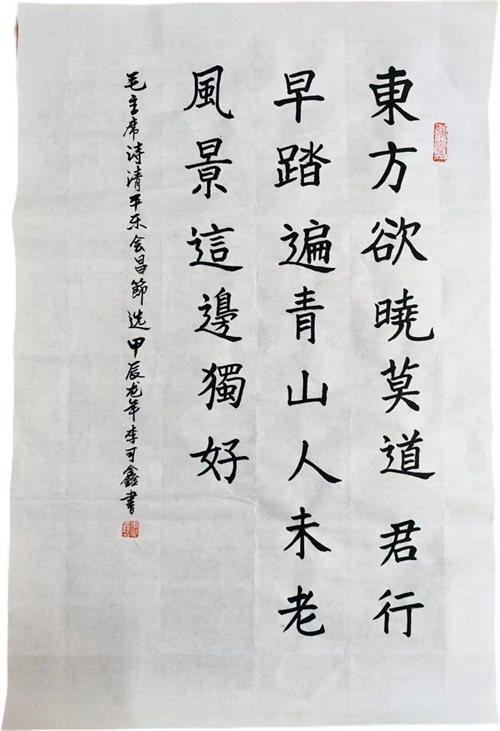 東方欲曉莫道君行
早踏遍青山人未老
風景這邊獨好
毛主席诗清平乐会昌節选甲辰龙年李可鑫書